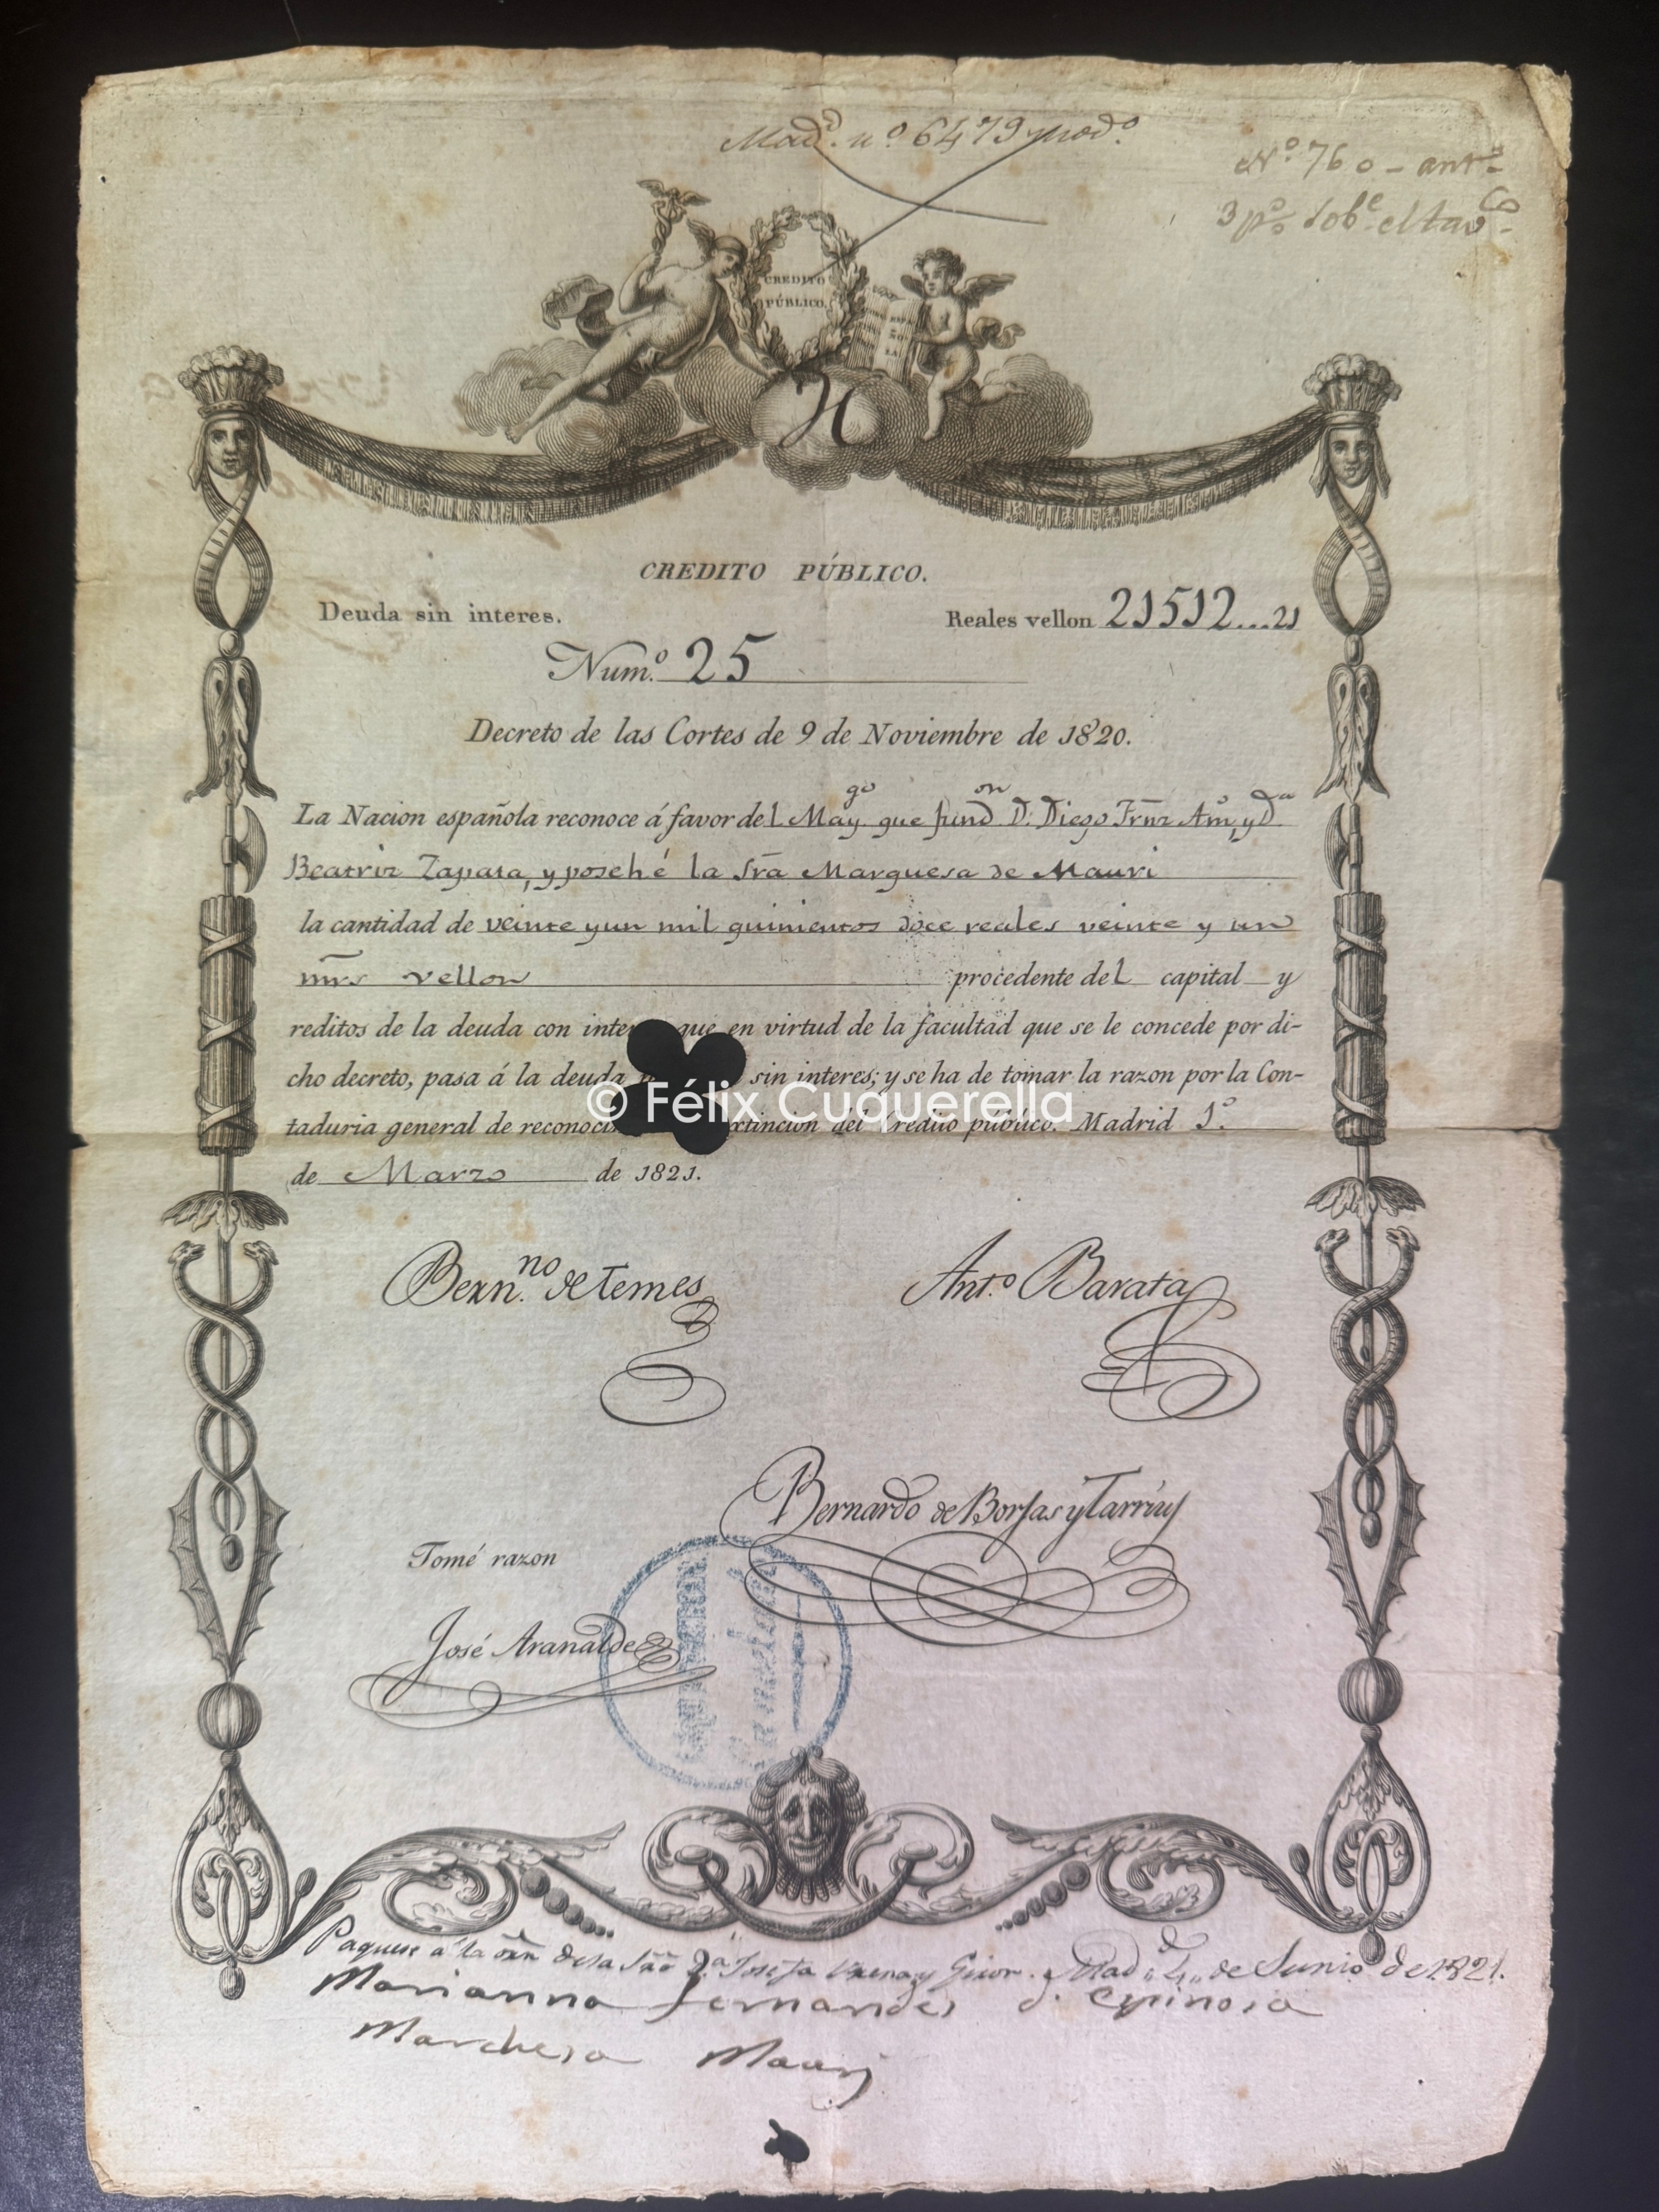 Mad.d n.o 6479 mod.o
N.o 760 - ant.o
3 p.o sob.e el tav.
CREDITO
PÚBLICO.
ESPAÑOLA
H
CREDITO PÚBLICO.
Deuda sin interes. Reales vellon 21512...21
Num.o 25
Decreto de las Cortes de 9 de Noviembre de 1820.
La Nacion española reconoce á favor del May.go que fund.on D. Diego Frnz Am, y D.a
Beatriz Zapata, y posehé la Sra Marquesa de Mauri
la cantidad de veinte y un mil quinientos doce reales veinte y un
mrs vellon procedente del capital y
reditos de la deuda con inte que en virtud de la facultad que se le concede por di-
cho decreto, pasa á la deuda sin interes; y se ha de tomar la razon por la Con-
taduria general de reconoci xtincion del Credito público. Madrid 1.o
de Marzo de 1821.
© Félix Cuquerella
Bern.no de Temes Ant.o Barata
Bernardo de Borjas y Tarrius
Tomé razon
José Aranalde
Paguese á la orn de la Sra D.a Josefa y Giron. Mad.d 4 de Junio de 1821.
Marianna fernandes d. Espinosa
Marchesa Mauri